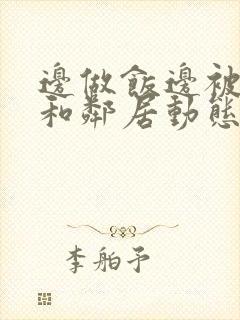 邊做飯邊被
和鄰居動態
李舶予